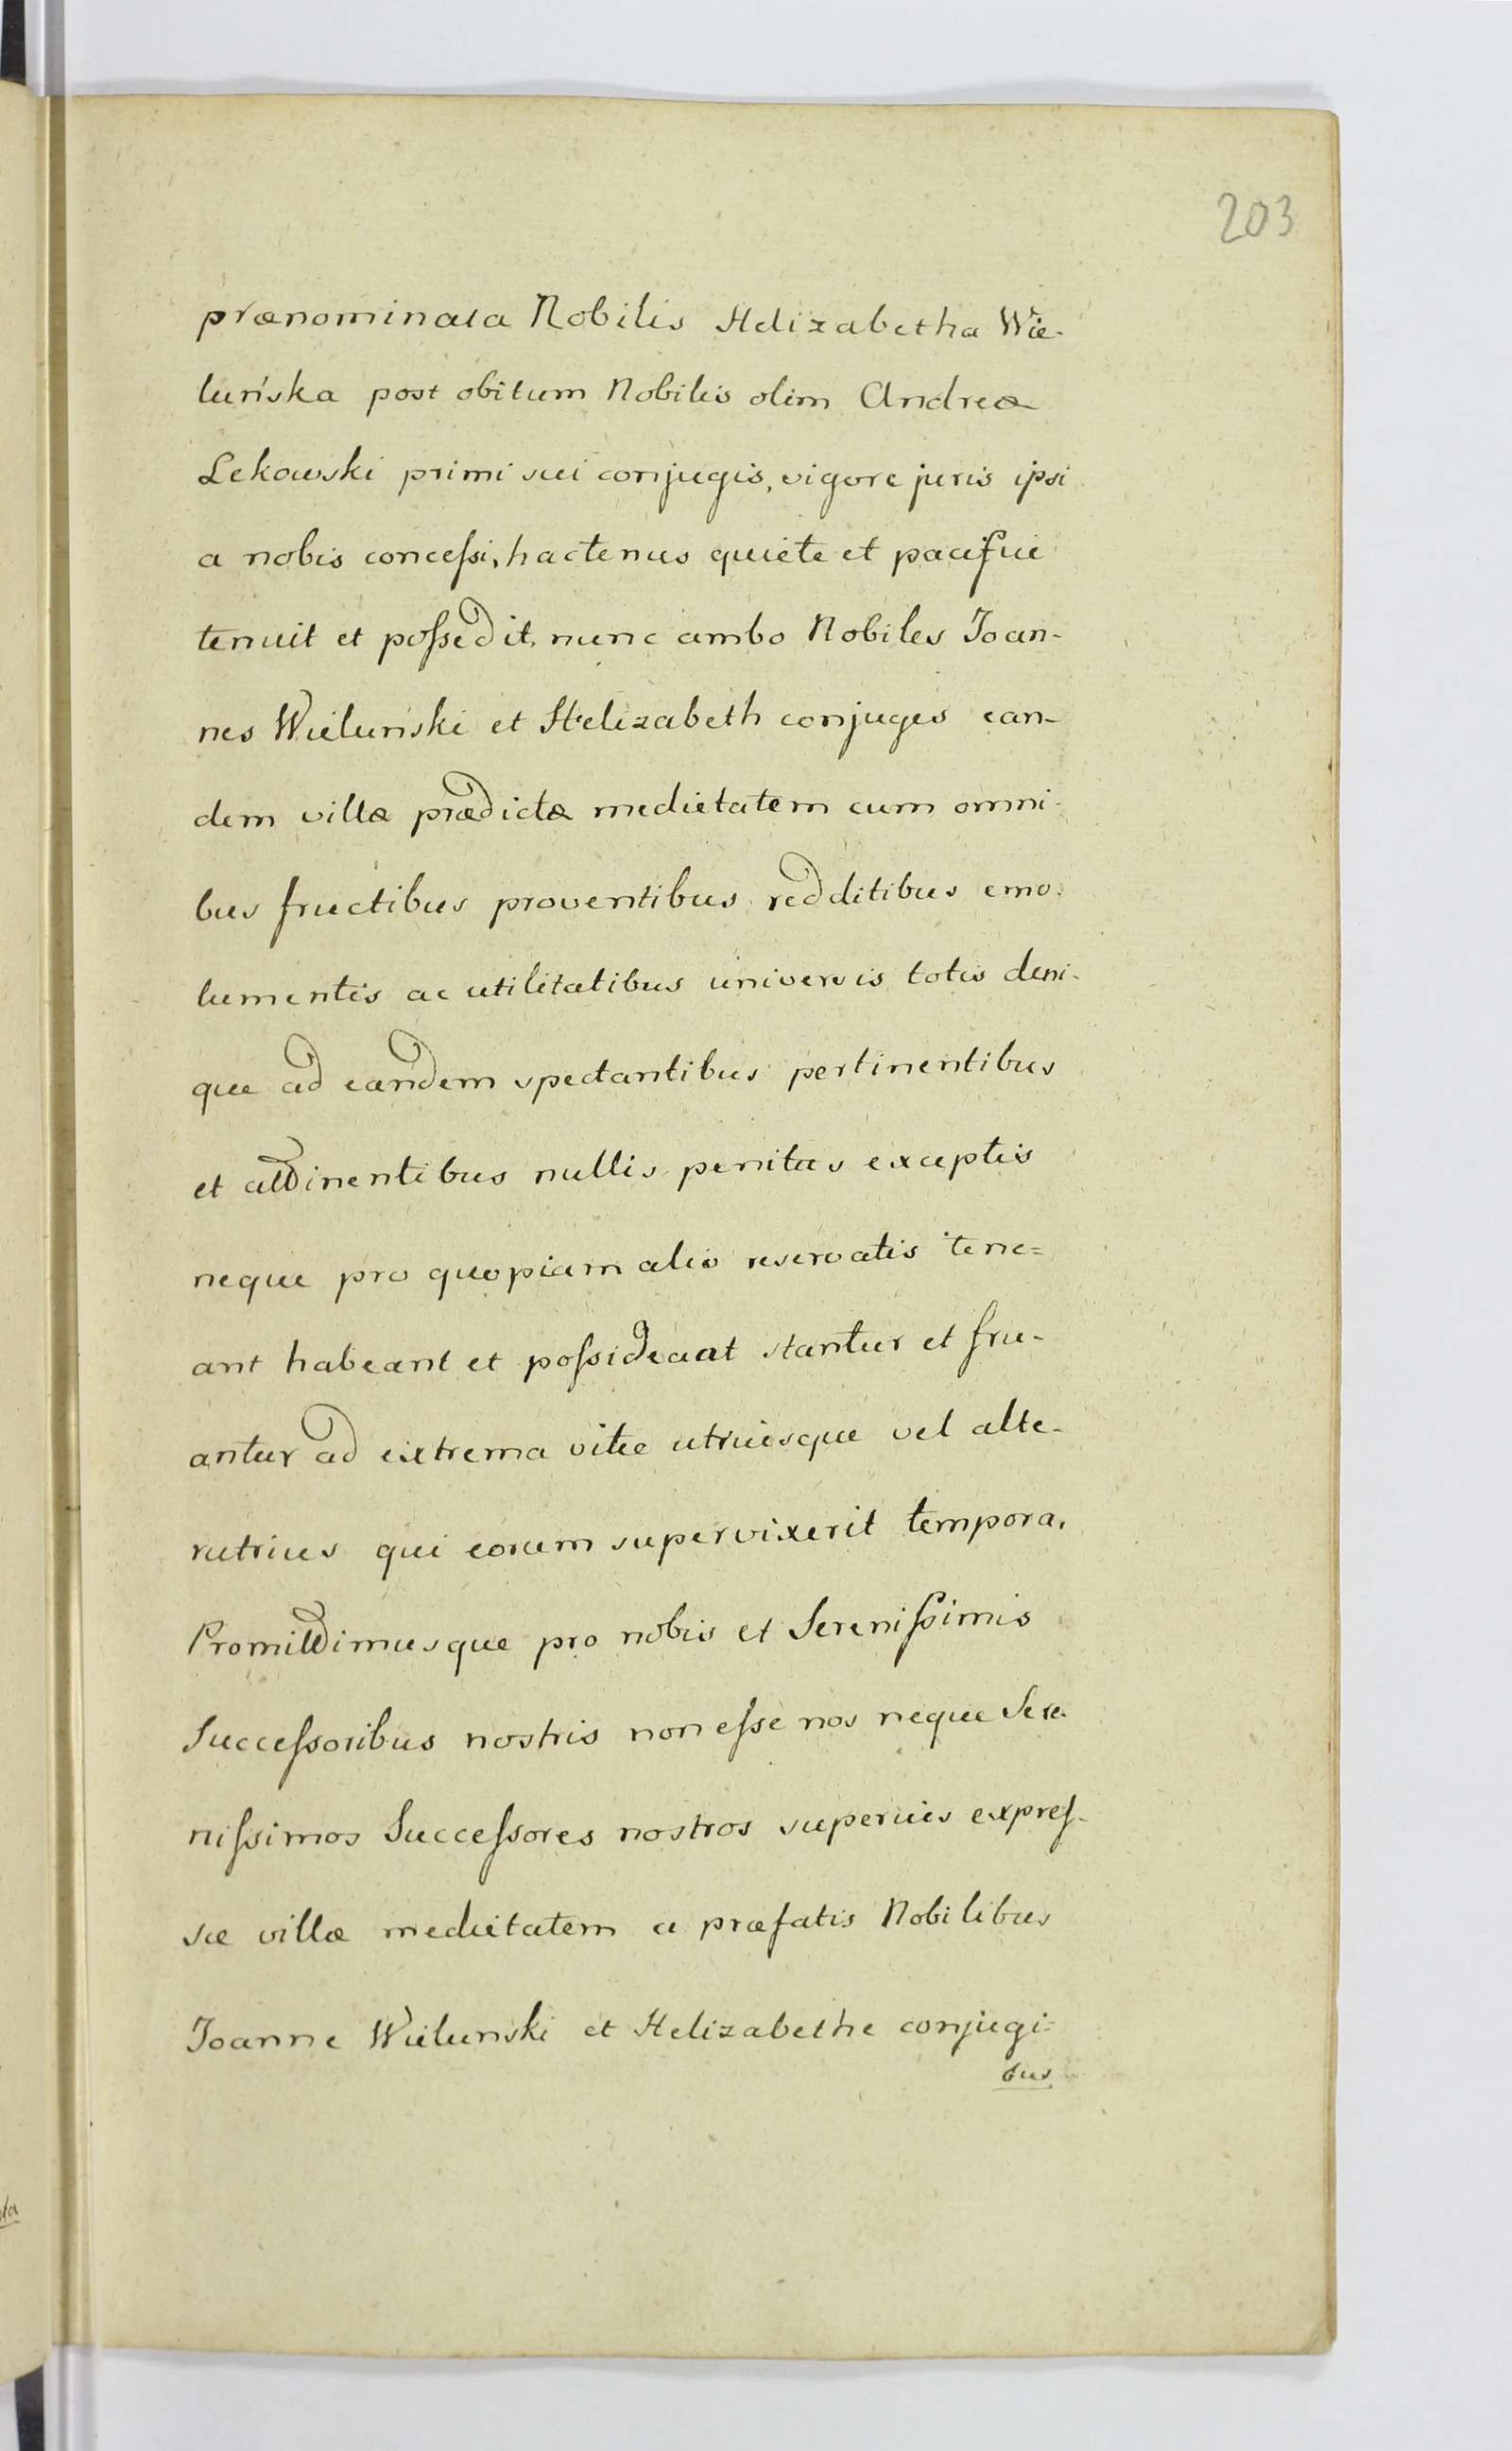 203
prænominata Nobilis Helizabetha Wie-
luńska post obitum Nobilis olim Andreæ
Lekowski primi sui conjugis, vigore juris ipsi
a nobis conceſsi, hactenus quiete et pacifice
tenuit et poſsedit, nunc ambo Nobiles Joan-
nes Wieluński et Helizabeth conjuges ean-
dem villæ prædictæ medietatem cum omni-
bus fructibus proventibus redditibus emo-
lumentis ac utilitatibus universis totis deni-
que ad eandem spectantibus pertinentibus
et attinentibus nullis penitus exceptis
neque pro quopiam alio reservatis tene=
ant habeant et poſsideaat stantur et fru-
antur ad extrema vitæ utriusque vel alte-
rutrius qui eorum supervixerit tempora,
Promittimusque pro nobis et Sereniſsimis
Succeſsoribus nostris non eſse nos neque Sere-
niſsimos Succeſsores nostros superius expreſ-
sæ villæ medietatem a præfatis Nobilibus
Joanne Wielunski et Helizabethe conjugi=
bus